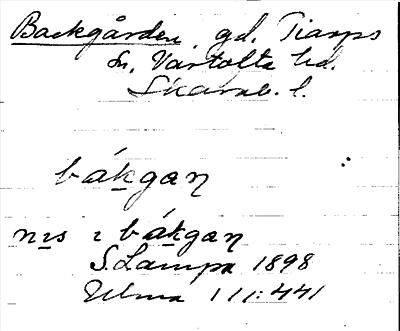 Backgården, gd. Tiarps
sn, Vartofta hd.
Skarab. l.
bákgaŋ
nɪs i bákgaŋ
S. Lampa 1898
Ulma 111:441